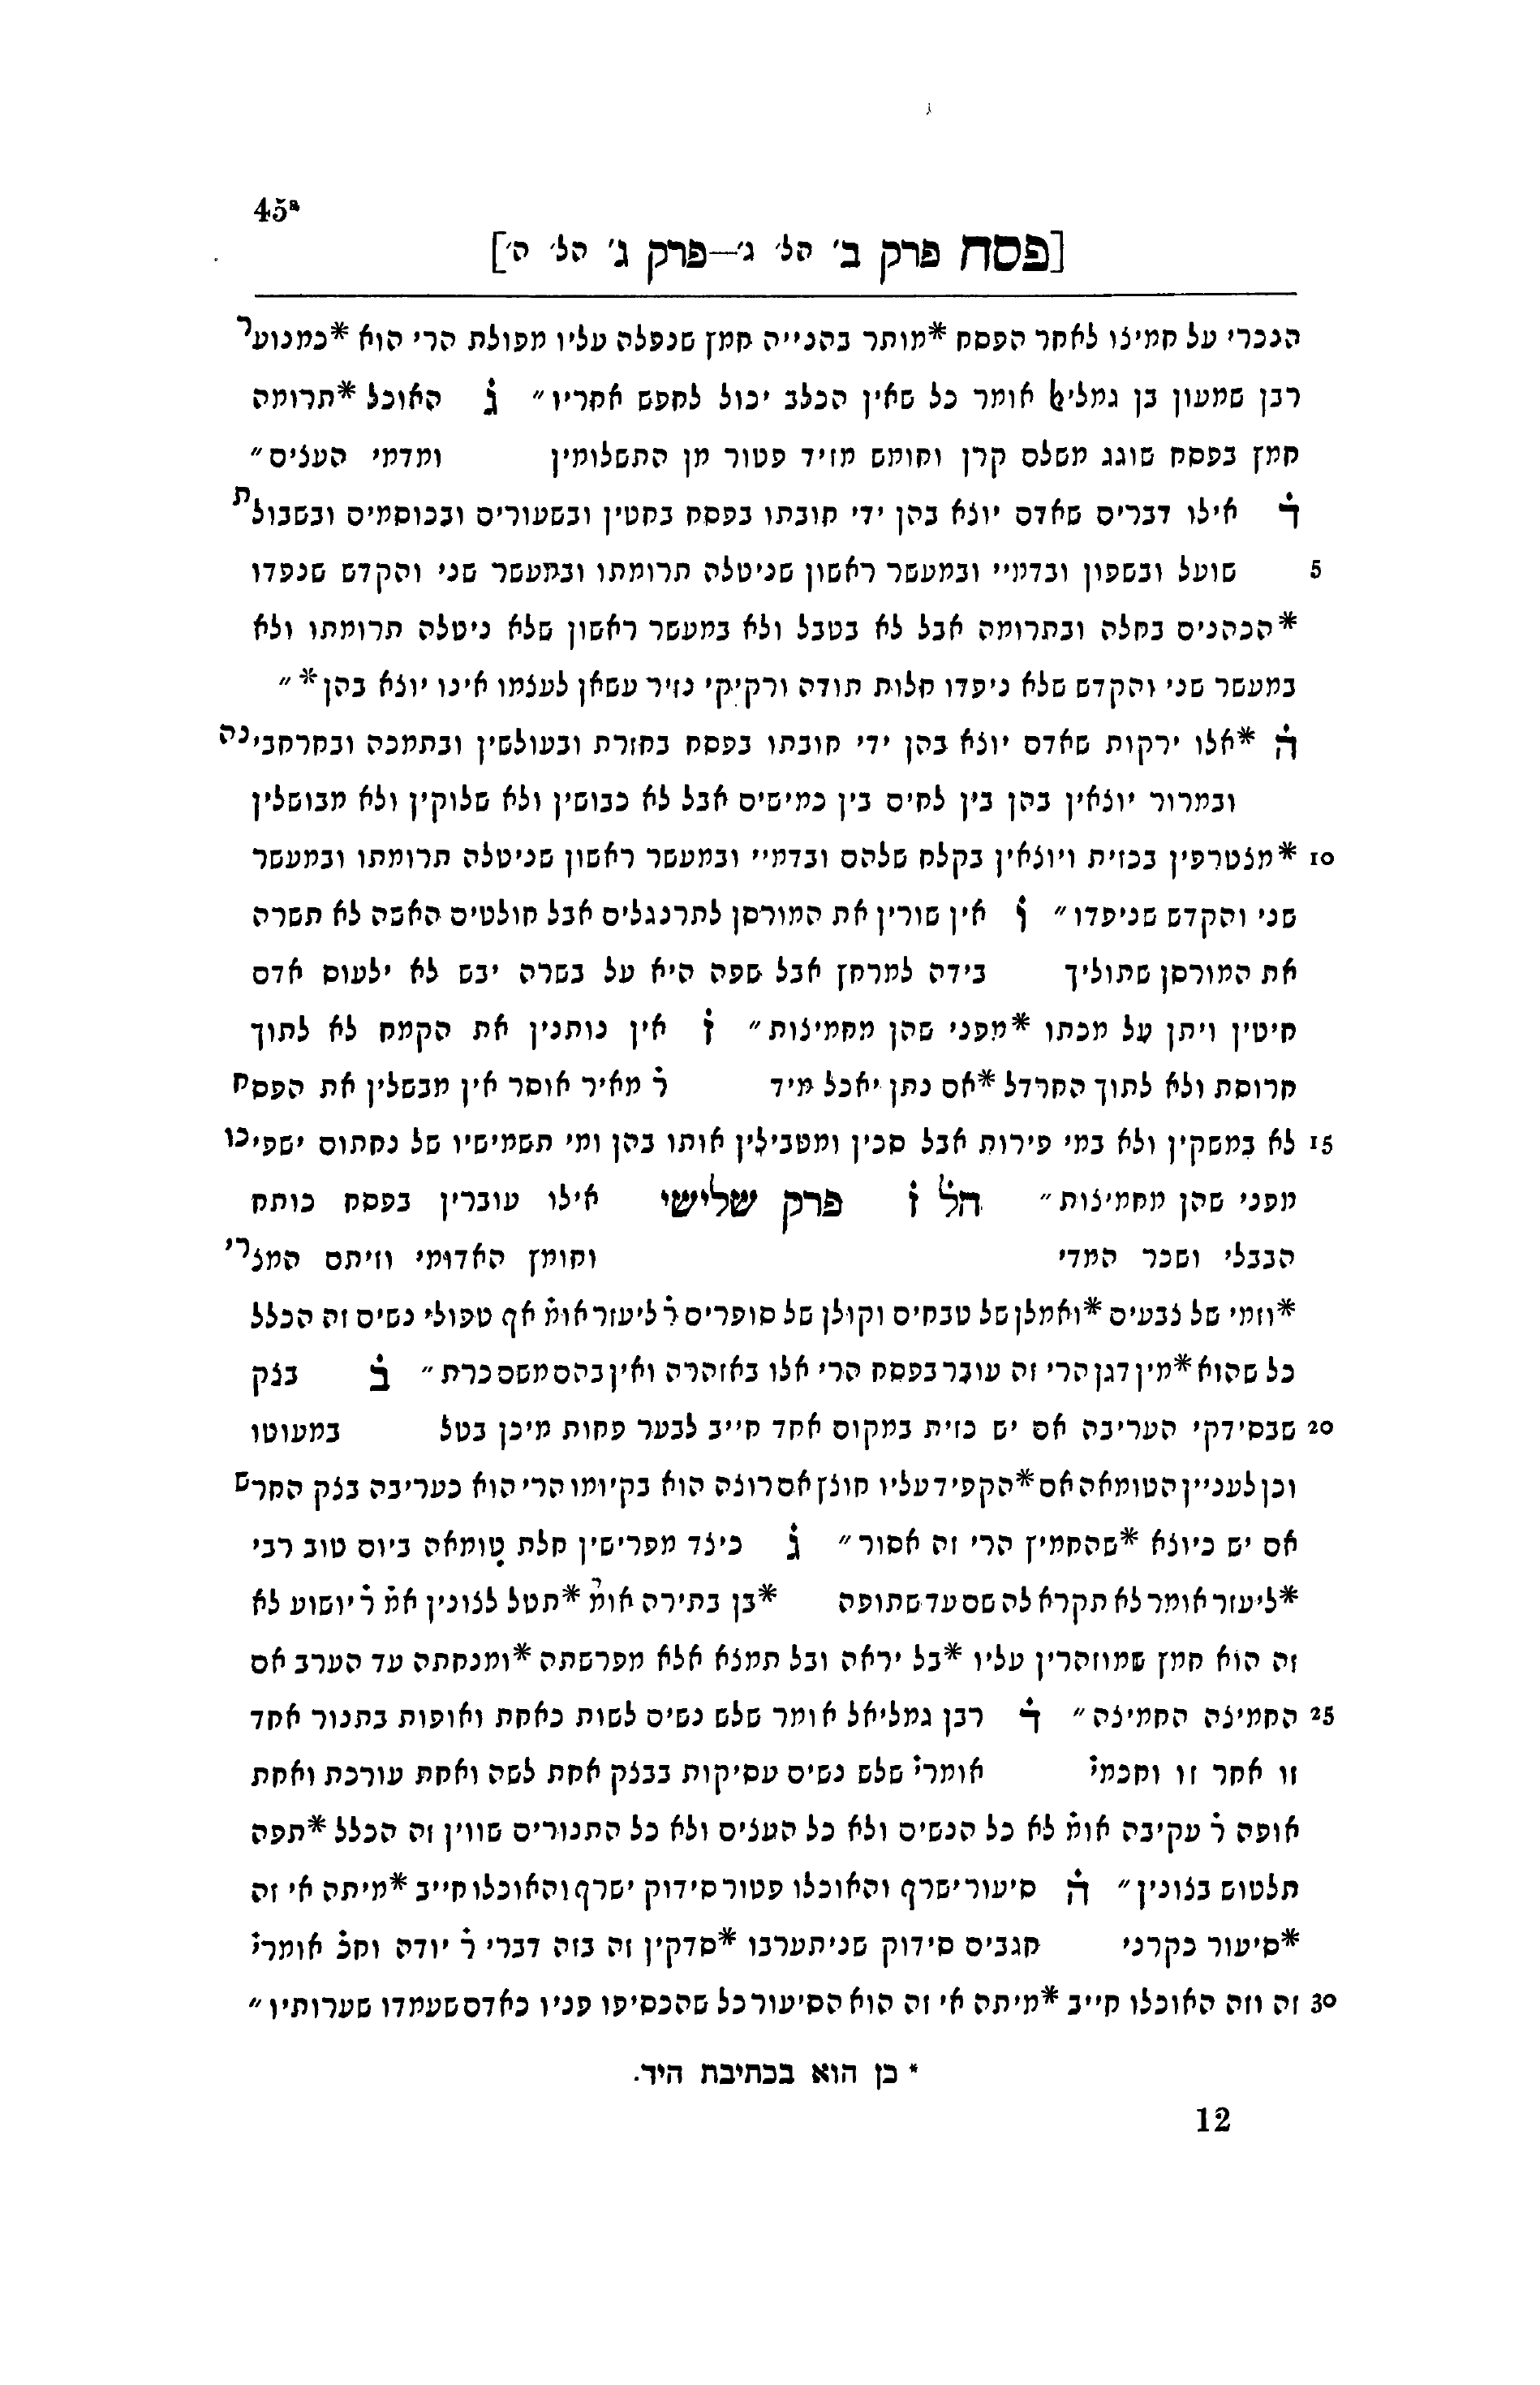 45ª
[פסח פרק ב׳ הל׳ ג׳—פרק ג׳ הל׳ ה׳]
הנכרי על חמיצו לאחר הפסח *מותר בהנייה חמץ שנפלה עליו מפולת הרי הוא *כמנוער
רבן שמעון בן גמליאל אומר כל שאין הכלב יכול לחפש אחריו״ ג̇ האוכל *תרומה
חמץ בפסח שוגג משלם קרן וחומש מזיד פטור מן התשלומין ומדמי העצים״
ד̇ אילו דברים שאדם יוצא בהן ידי חובתו בפסח בחטין ובשעורים ובכוסמים ובשבולת
5 שועל ובשפון ובדמיי ובמעשר ראשון שניטלה תרומתו ובמעשר שני והקדש שנפדו
*הכהנים בחלה ובתרומה אבל לא בטבל ולא במעשר ראשון שלא ניטלה תרומתו ולא
במעשר שני והקדש שלא ניפדו חלות תודה ורקיקי נזיר עשאן לעצמו אינו יוצא בהן*״
ה̇ *אלו ירקות שאדם יוצא בהן ידי חובתו בפסח בחזרת ובעולשין ובתמכה ובחרחבינה
ובמרור יוצאין בהן בין לחים בין כמישים אבל לא כבושין ולא שלוקין ולא מבושלין
10 *מצטרפין בכזית ויוצאין בקלח שלהם ובדמיי ובמעשר ראשון שניטלה תרומתו ובמעשר
שני והקדש שניפדו״ ו̇ אין שורין את המורסן לתרנגלים אבל חולטים האשה לא תשרה
את המורסן שתוליך בידה למרחץ אבל שפה היא על בשרה יבש לא ילעוס אדם
חיטין ויתן על מכתו *מפני שהן מחמיצות״ ז̇ אין נותנין את הקמח לא לתוך
חרוסת ולא לתוך החרדל *אם נתן יאכל מיד ר̇ מאיר אוסר אין מבשלין את הפסח
15 לא במשקין ולא במי פירות אבל סכין ומטבילין אותו בהן ומי תשמישיו של נחתום ישפיכו
מפני שהן מחמיצות״ הל̇ ז̇ פרק שלישי אילו עוברין בפסח כותח
הבבלי ושכר המדי וחומץ האדומי וזיתם המצרי
*וזמי של צבעים *ואמלן של טבחים וקולן של סופרים ר̇ ליעזר אומ̇ אף טפולי נשים זה הכלל
כל שהוא *מין דגן הרי זה עובר בפסח הרי אלו באזהרה ואין בהם משם כרת״ ב̇ בצק
20 שבסידקי העריבה אם יש כזית במקום אחד חייב לבער פחות מיכן בטל במעוטו
וכן לעניין הטומאה אם *הקפיד עליו חוצץ אם רוצה הוא בקיומו הרי הוא כעריבה בצק החרש
אם יש כיוצא *שהחמיץ הרי זה אסור״ ג̇ כיצד מפרישין חלת טומאה ביום טוב רבי
*ליעזר אומר לא תקרא לה שם עד שתופה *בן בתירה אומר̇ *תטל לצונין אמ̇ ר̇ יושוע לא
זה הוא חמץ שמוזהרין עליו *בל יראה ובל תמצא אלא מפרשתה *ומנחתה עד הערב אם
25 החמיצה החמיצה״ ד̇ רבן גמליאל אומר שלש נשים לשות כאחת ואופות בתנור אחד
זו אחר זו וחכמי̇ אומרי̇ שלש נשים עסיקות בבצק אחת לשה ואחת עורכת ואחת
אופה ר̇ עקיבה אומ̇ לא כל הנשים ולא כל העצים ולא כל התנורים שווין זה הכלל *תפה
תלטוש בצונין״ ה̇ סיעור ישרף והאוכלו פטור סידוק ישרף והאוכלו חייב *מיתה אי זה
*סיעור כקרני חגבים סידוק שניתערבו *סדקין זה בזה דברי ר̇ יודה וחכ̇ אומרי̇
30 זה וזה האוכלו חייב *מיתה אי זה הוא הסיעור כל שהכסיפו פניו כאדם שעמדו שערותיו״
* כן הוא בכתיבת היד.
12